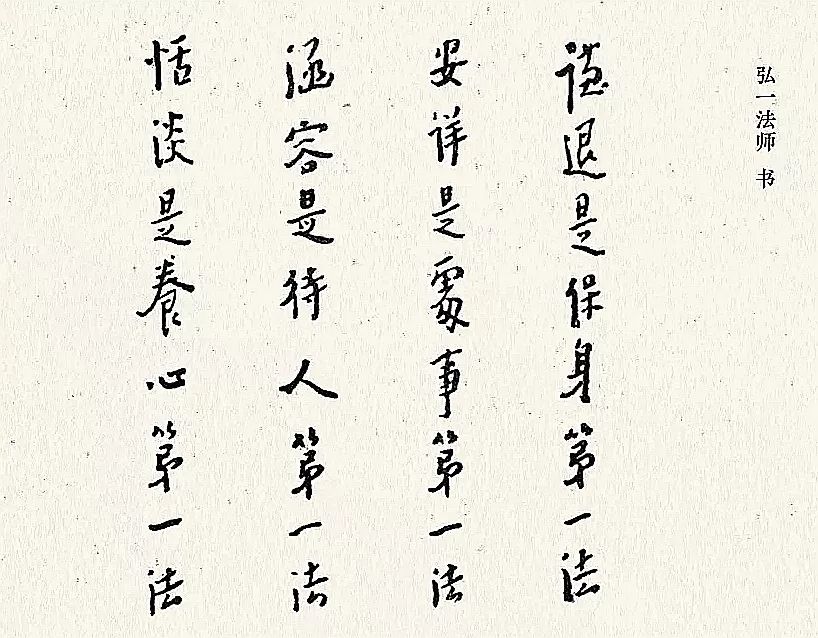 弘一法师 书
谦退是保身第一法
安详是處事第一法
涵容是待人第一法
恬淡是養心第一法